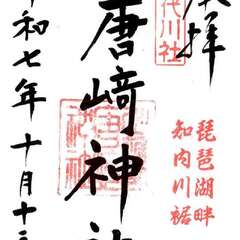 奉拝
代川社
琵琶湖畔
知内川裾
唐﨑神社
令和七年十月十三